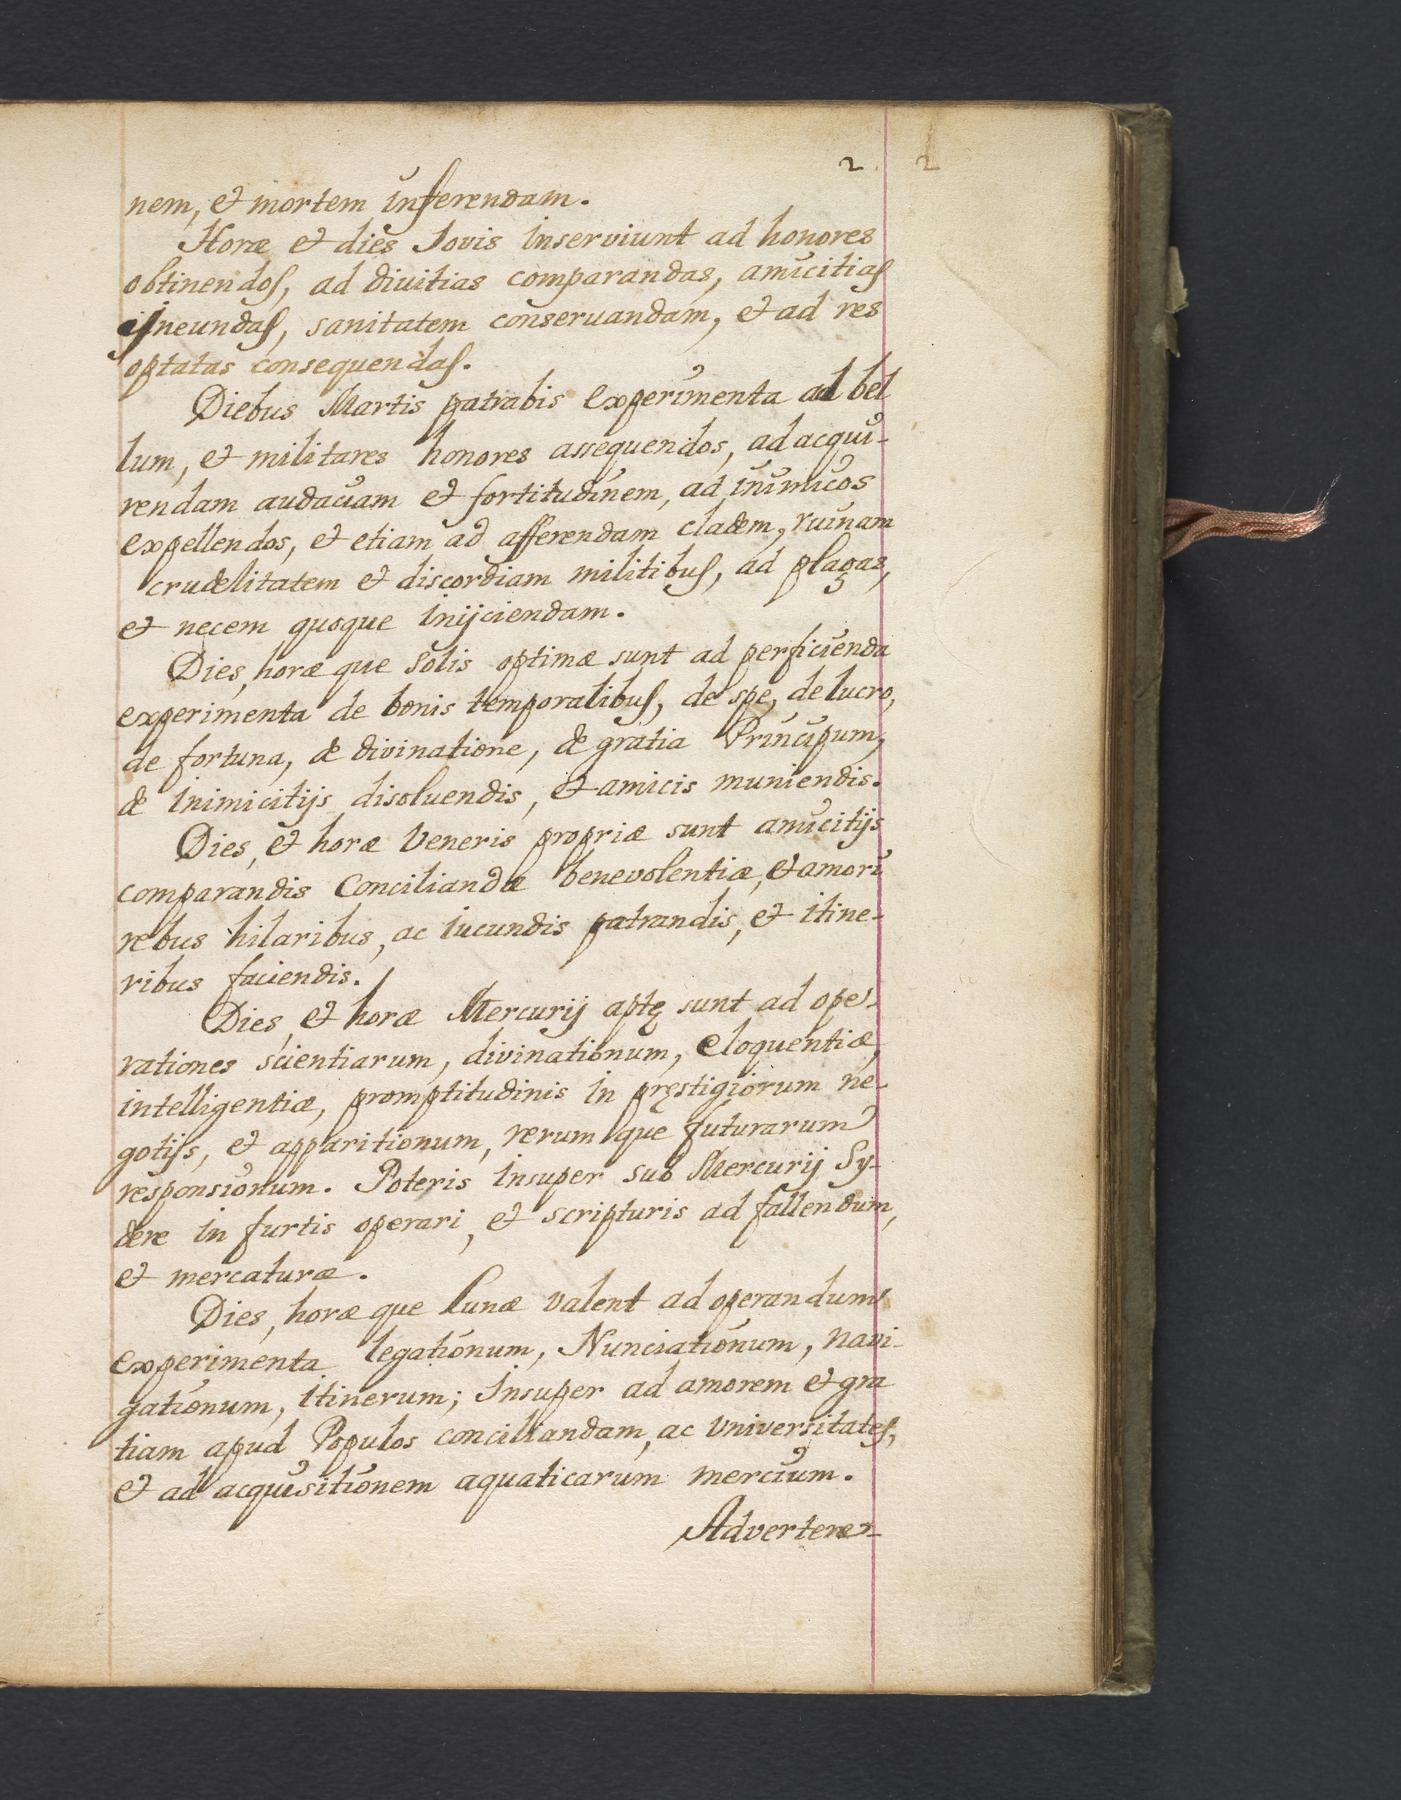 2. 2
nem, et mortem inferendam.
Horæ et dies Iovis inserviunt ad honores
obtinendos, ad divitias comparandas, amicitias
ineundas, sanitatem conseruandam, et ad res
optatas consequendas.
Diebus Martis patrabis experimenta ad bel
lum, et militares honores assequendos, ad acqui-
rendam audaciam et fortitudinem, ad inimicos
expellendos, et etiam ad afferendam cladem, ruinam
crudelitatem et discordiam militibus, ad plagas,
et necem quoque inijciendam.
Dies, horæ que Solis optimæ sunt ad perficienda
experimenta de bonis temporalibus, de spe, de lucro,
de fortuna, de divinatione, de gratia Principum,
de inimicitijs disoluendis, et amicis muniendis.
Dies, et horæ Veneris propriæ sunt amicitijs
comparandis Conciliandæ benevolentiæ, et amori
rebus hilaribus, ac iucundis patrandis, et itine-
ribus faciendis.
Dies, et horæ Mercurij aptę sunt ad ope-
rationes scientiarum, divinationum, eloquentiæ,
intelligentiæ, promptitudinis in pręstigiorum ne-
gotijs, et apparitionum, rerum que futurarum
responsionum. Poteris insuper sub Mercurij Sy-
dere in furtis operari, et scripturis ad fallendum,
et mercaturæ.
Dies, horæ que Lunæ valent ad operandum
experimenta legationum, Nunciationum, navi-
gationum, itinerum; Insuper ad amorem et gra
tiam apud Populos conciliandam, ac Vniversitates,
et ad acquisitionem aquaticarum mercium.
Advertere-